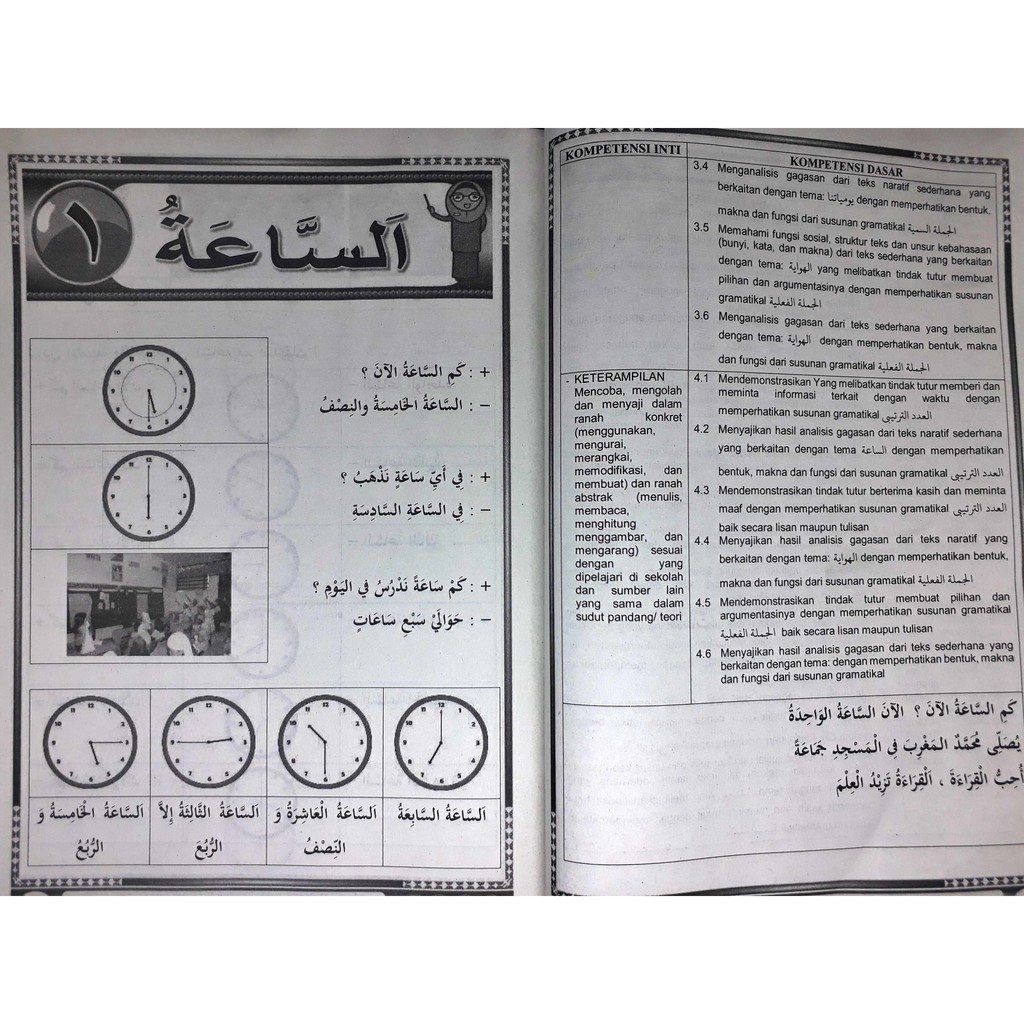 ١
اَلسَّاعَةُ
+ : كَمِ السَّاعَةُ الآنَ ؟
– : السَّاعَةُ الخَامِسَةُ والنِصْفُ
+ : فِي أَيِّ سَاعَةٍ نَذْهَبُ ؟
– : فِي السَّاعَةِ السَّادِسَةِ
+ : كَمْ سَاعَةً نَدْرُسُ في اليَوْمِ ؟
– : حَوَالَيْ سَبْعِ سَاعَاتٍ
اَلسَّاعَةُ السَّابِعَةُ
اَلسَّاعَةُ الْعَاشِرَةُ وَ
النِّصْفُ
اَلسَّاعَةُ الثَّالِثَةُ إِلاَّ
الرُّبُعَ
اَلسَّاعَةُ الْخَامِسَةُ وَ
الرُّبُعُ
KOMPETENSI INTI
KOMPETENSI DASAR
3.4 Menganalisis gagasan dari teks naratif sederhana yang
berkaitan dengan tema: يومياتنا dengan memperhatikan bentuk,
makna dan fungsi dari susunan gramatikal الجملة السمية
3.5 Memahami fungsi sosial, struktur teks dan unsur kebahasaan
(bunyi, kata, dan makna) dari teks sederhana yang berkaitan
dengan tema: الهواية yang melibatkan tindak tutur membuat
pilihan dan argumentasinya dengan memperhatikan susunan
gramatikal الجملة الفعلية
3.6 Menganalisis gagasan dari teks sederhana yang berkaitan
dengan tema: الهواية dengan memperhatikan bentuk, makna
dan fungsi dari susunan gramatikal الجملة الفعلية
- KETERAMPILAN
Mencoba, mengolah
dan menyaji dalam
ranah konkret
(menggunakan,
mengurai,
merangkai,
memodifikasi, dan
membuat) dan ranah
abstrak (menulis,
membaca,
menghitung
menggambar, dan
mengarang) sesuai
dengan yang
dipelajari di sekolah
dan sumber lain
yang sama dalam
sudut pandang/ teori
4.1 Mendemonstrasikan Yang melibatkan tindak tutur memberi dan
meminta informasi terkait dengan waktu dengan
memperhatikan susunan gramatikal العدد الترتيبي
4.2 Menyajikan hasil analisis gagasan dari teks naratif sederhana
yang berkaitan dengan tema الساعة dengan memperhatikan
bentuk, makna dan fungsi dari susunan gramatikal العدد الترتيبي
4.3 Mendemonstrasikan tindak tutur berterima kasih dan meminta
maaf dengan memperhatikan susunan gramatikal العدد الترتيبي
baik secara lisan maupun tulisan
4.4 Menyajikan hasil analisis gagasan dari teks naratif yang
berkaitan dengan tema: الهواية dengan memperhatikan bentuk,
makna dan fungsi dari susunan gramatikal الجملة الفعلية
4.5 Mendemonstrasikan tindak tutur membuat pilihan dan
argumentasinya dengan memperhatikan susunan gramatikal
الجملة الفعلية baik secara lisan maupun tulisan
4.6 Menyajikan hasil analisis gagasan dari teks sederhana yang
berkaitan dengan tema: dengan memperhatikan bentuk, makna
dan fungsi dari susunan gramatikal
كَمِ السَّاعَةُ الآنَ ؟ الآنَ السَّاعَةُ الوَاحِدَةُ
يُصَلِّى مُحَمَّدٌ المَغْرِبَ فِي الْمَسْجِدِ جَمَاعَةً
أُحِبُّ الْقِرَاءَةَ ، اَلْقِرَاءَةُ تَزِيْدُ الْعِلْمَ